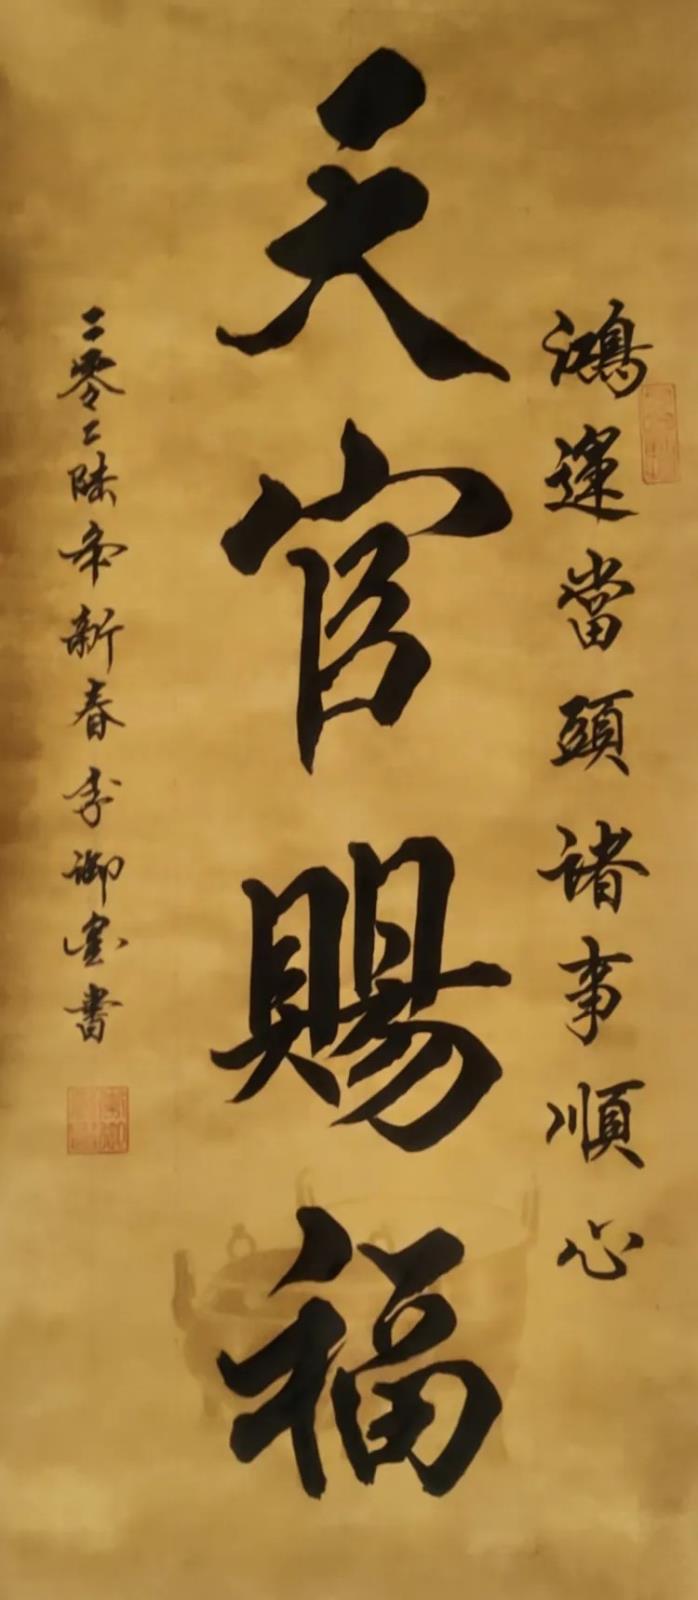 鴻運當頭諸事順心
天官賜福
二零二陸年新春李御墨書